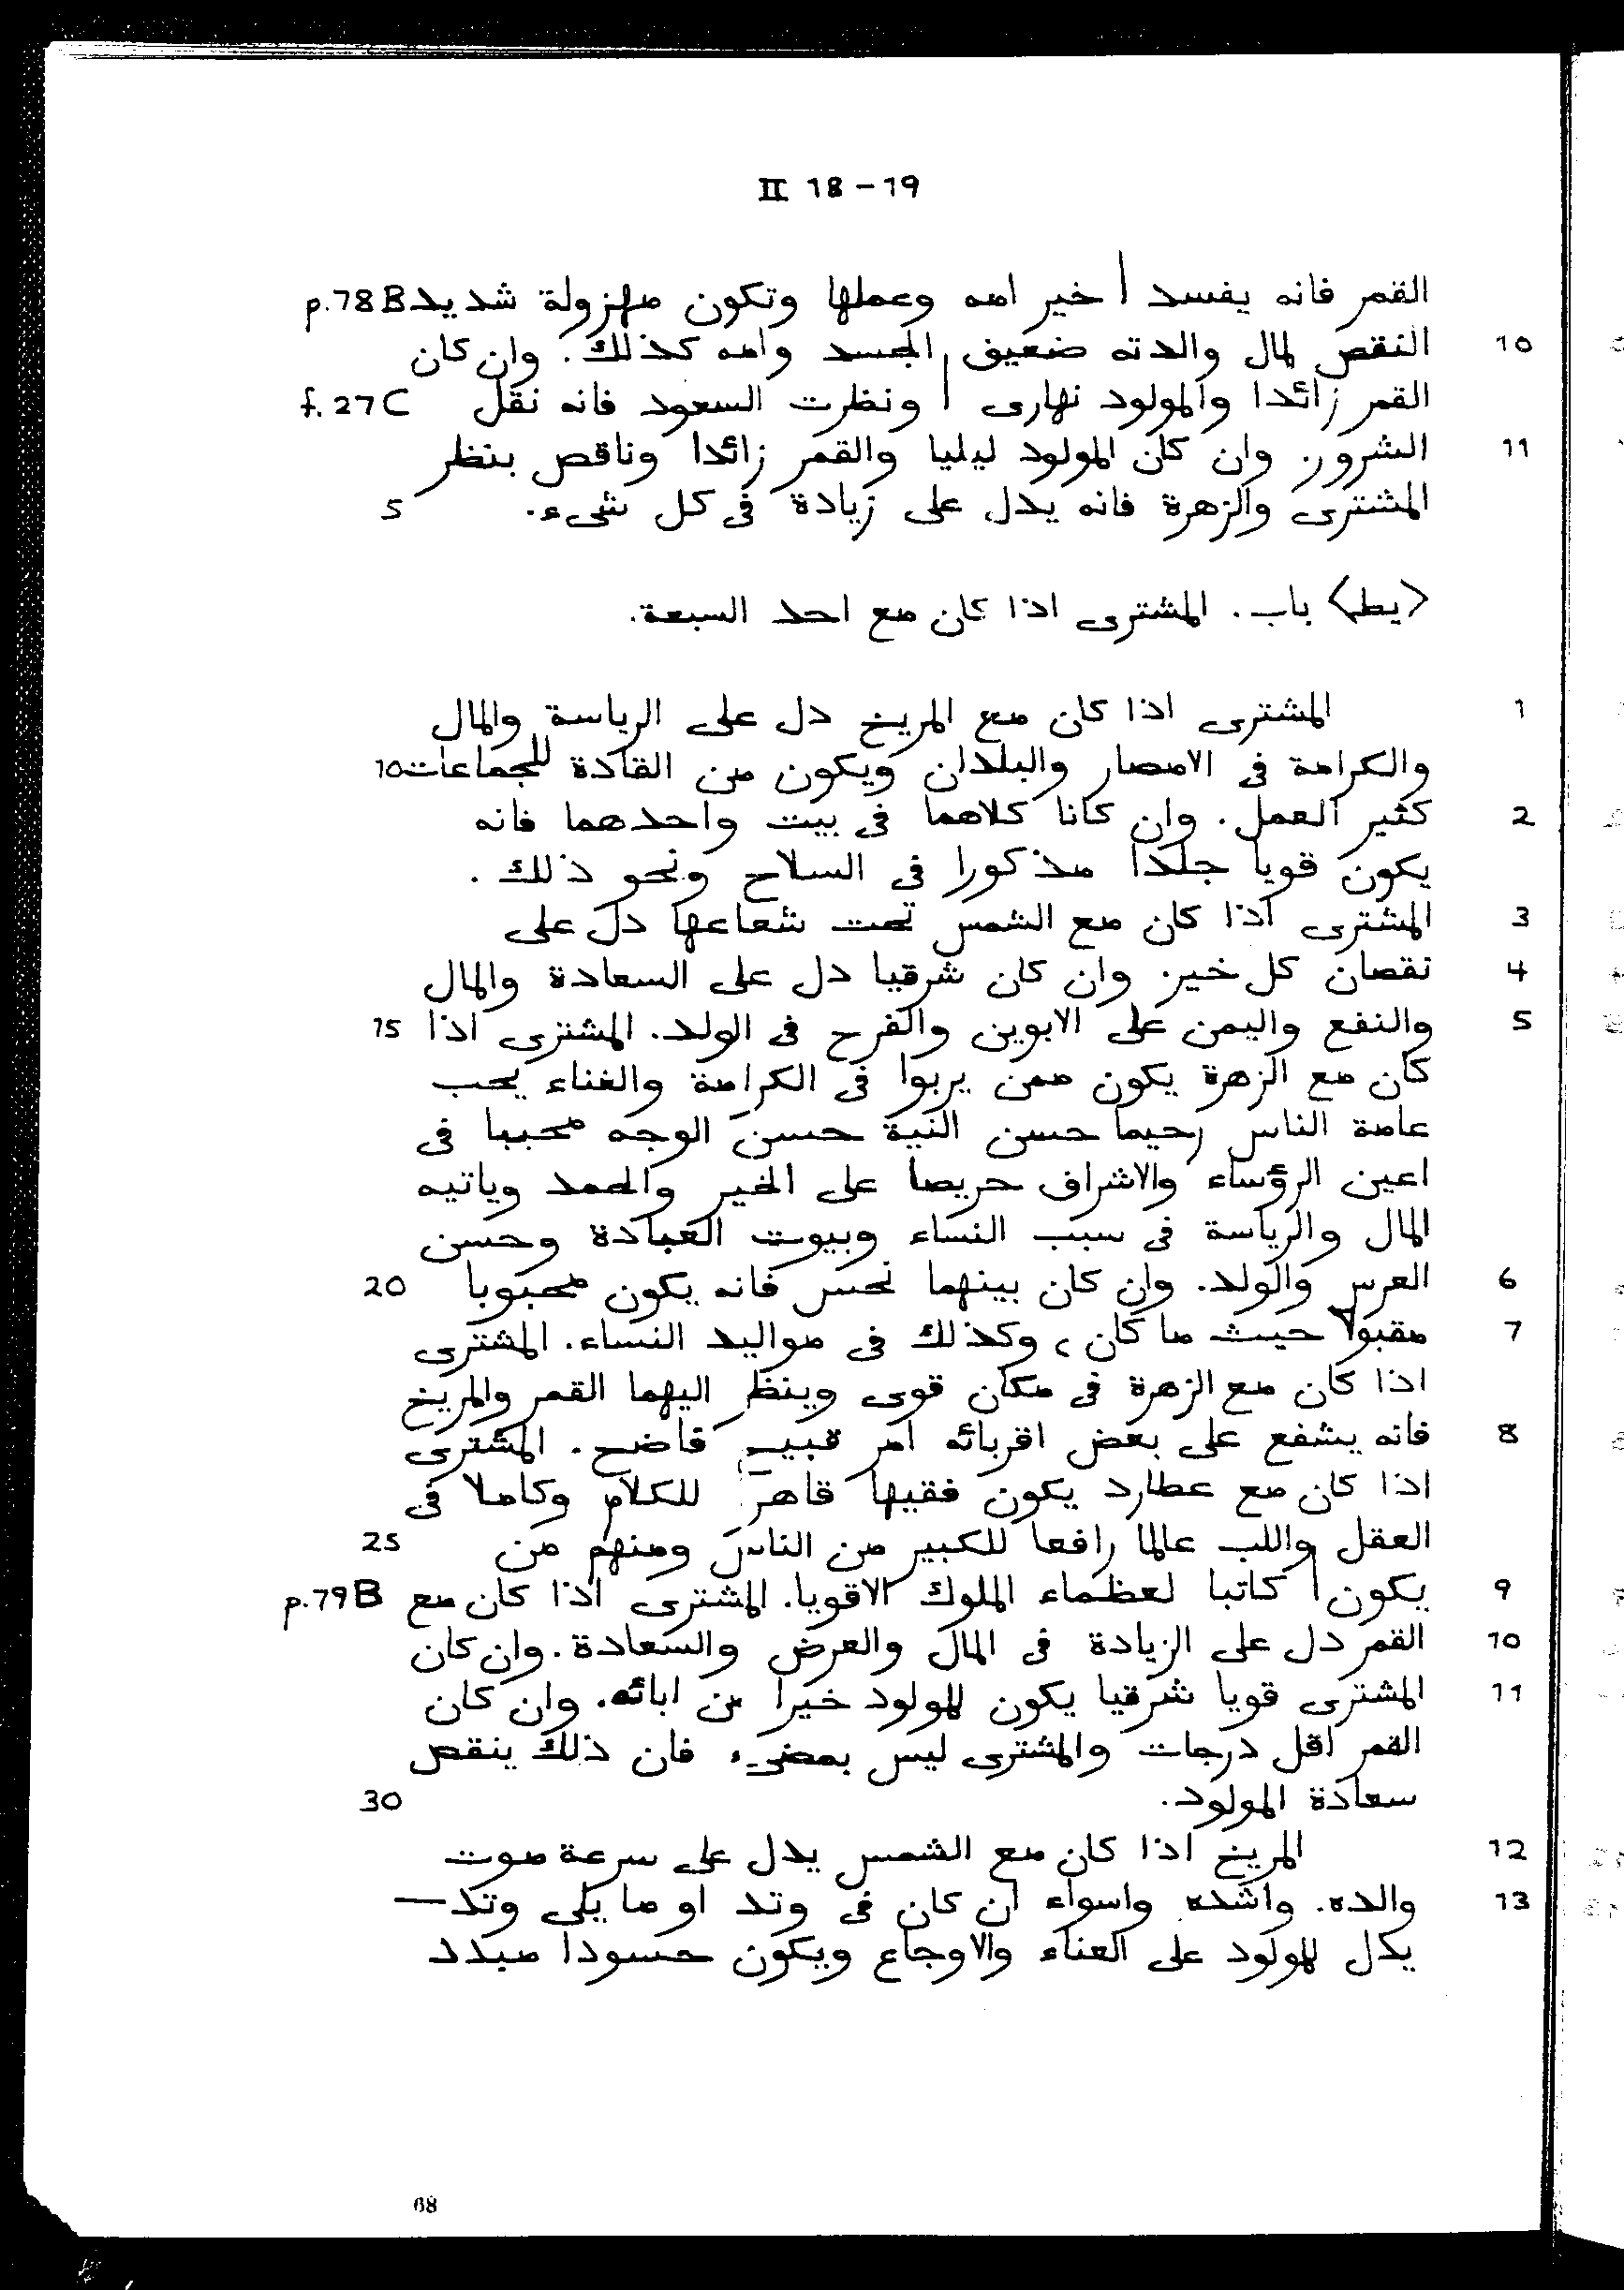 II 18-19
القمر فانه يفسد | خير امه وعملها وتكون مهزولة شديد p.78B
10 النقص لمال والدته ضعيف الجسد وامه كذلك. وان كان
القمر زائدا والمولود نهارى | ونظرت السعود فانه نقل f.27C
11 الشرور. وان كان المولود ليليا والقمر زائدا وناقص بنظر
المشترى والزهرة فانه يدل على زيادة فى كل شىء. 5
<يط> باب. المشترى اذا كان مع احد السبعة.
1 المشترى اذا كان مع المريخ دل على الرياسة والمال
والكرامة فى الامصار والبلدان ويكون من القادة للجماعات 10
2 كثير العمل. وان كانا كلاهما فى بيت واحدهما فانه
يكون قويا جلدا مذكورا فى السلاح ونحو ذلك.
3 المشترى اذا كان مع الشمس تحت شعاعها دل على
4 نقصان كل خير. وان كان شرقيا دل على السعادة والمال
5 والنفع واليمن على الابوين والفرح فى الولد. المشترى اذا 15
كان مع الزهرة يكون ممن يربوا فى الكرامة والغناء يحب
عامة الناس رحيما حسن النية حسن الوجه محببا فى
اعين الرؤساء والاشراف حريصا على الخير والحمد وياتيه
المال والرياسة فى سبب النساء وبيوت العبادة وحسن
6 العرس والولد. وان كان بينهما نحس فانه يكون محبوبا 20
7 مقبولا حيث ما كان، وكذلك فى مواليد النساء. المشترى
اذا كان مع الزهرة فى مكان قوى وينظر اليهما القمر والمريخ
8 فانه يشفع على بعض اقربائه امر قبيح فاضح. المشترى
اذا كان مع عطارد يكون فقيها قاهر للكلام وكاملا فى
العقل واللب عالما رافعا للكبير من الناس ومنهم من 25
9 يكون | كاتبا لعظماء الملوك الاقويا. المشترى اذا كان مع p.79B
10 القمر دل على الزيادة فى المال والعرض والسعادة. وان كان
11 المشترى قويا شرقيا يكون للمولود خيرا من ابائه. وان كان
القمر اقل درجات والمشترى ليس بمضىء فان ذلك ينقص
سعادة المولود. 30
12 المريخ اذا كان مع الشمس يدل على سرعة موت
13 والده. واشده واسواء ان كان فى وتد او ما يلى وتد —
يدل للمولود على العناء والاوجاع ويكون حسودا مبدد
68